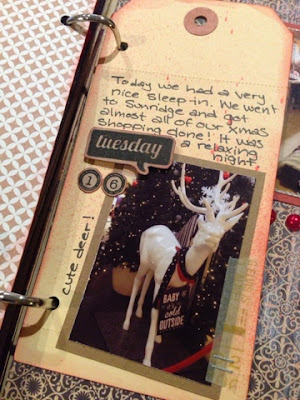 Today we had a very
nice sleep-in. We went
to Sunridge and got
almost all of our xmas
shopping done! It was
a relaxing
night.
tuesday
16
cute deer!
BABY
it's cold
OUTSIDE